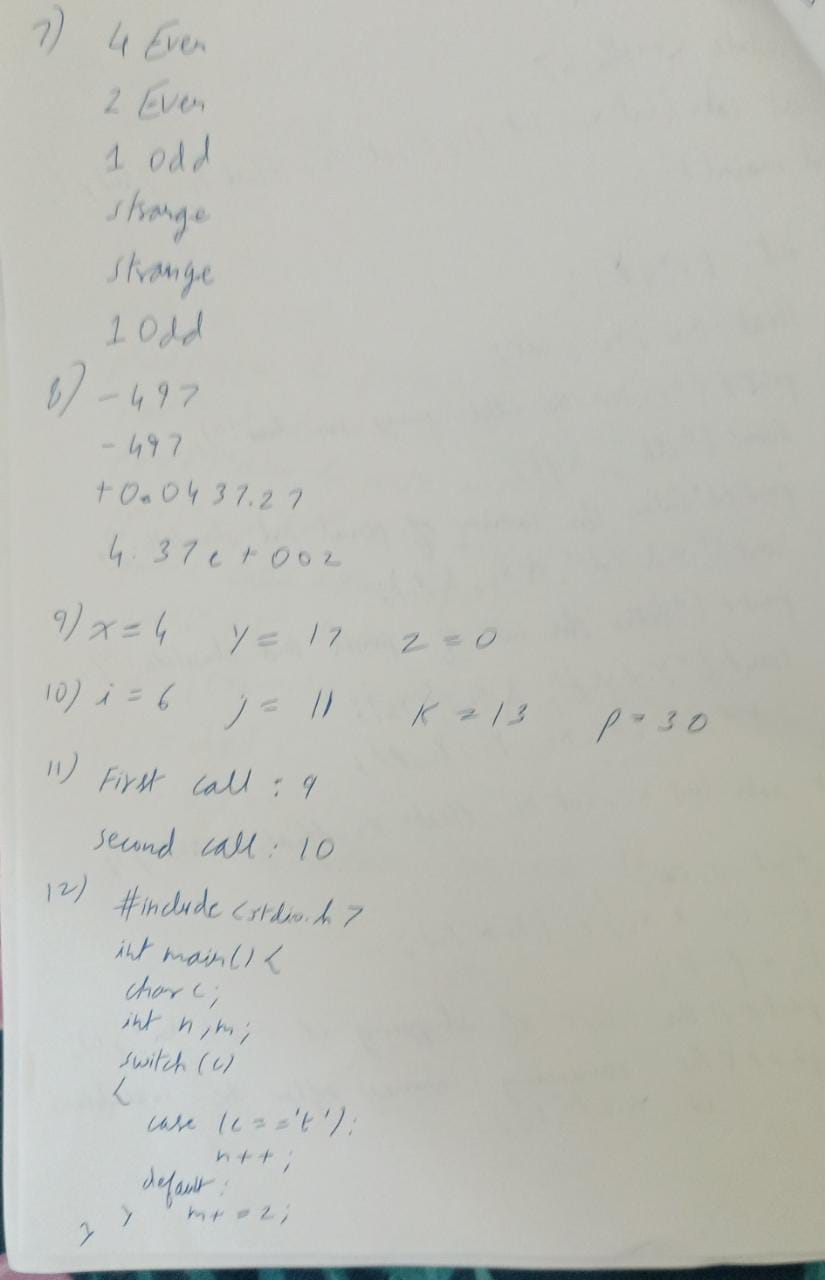 7) 4 Even
2 Even
1 odd
strange
strange
1 Odd
8) -497
-497
+0.0437.27
4.37e+002
9) x=4 y=17 z=0
10) i=6 j=11 K=13 p=30
11) First call: 9
second call: 10
12) #include <stdio.h>
int main() {
char c;
int n,m;
switch (c)
{
case (c=='t'):
n++;
default:
m+=2;
} }